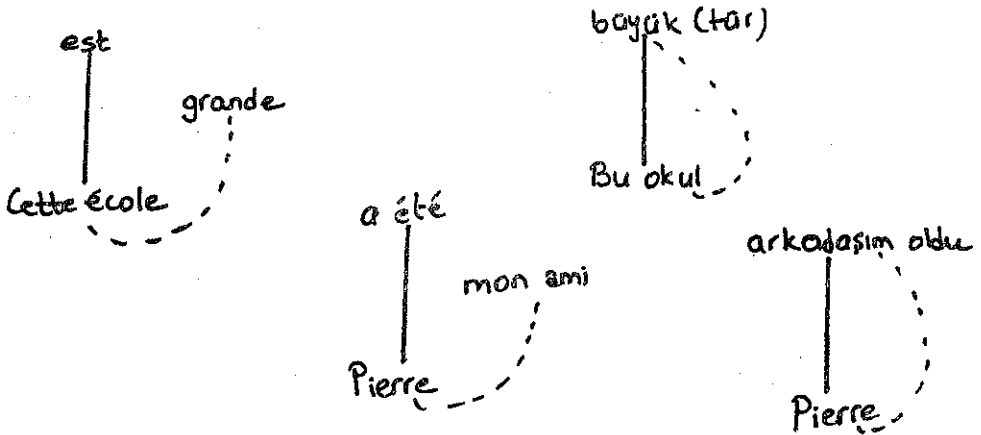 est
grande
Cette école
büyük (tür)
Bu okul
a été
mon ami
Pierre
arkadaşım oldu
Pierre